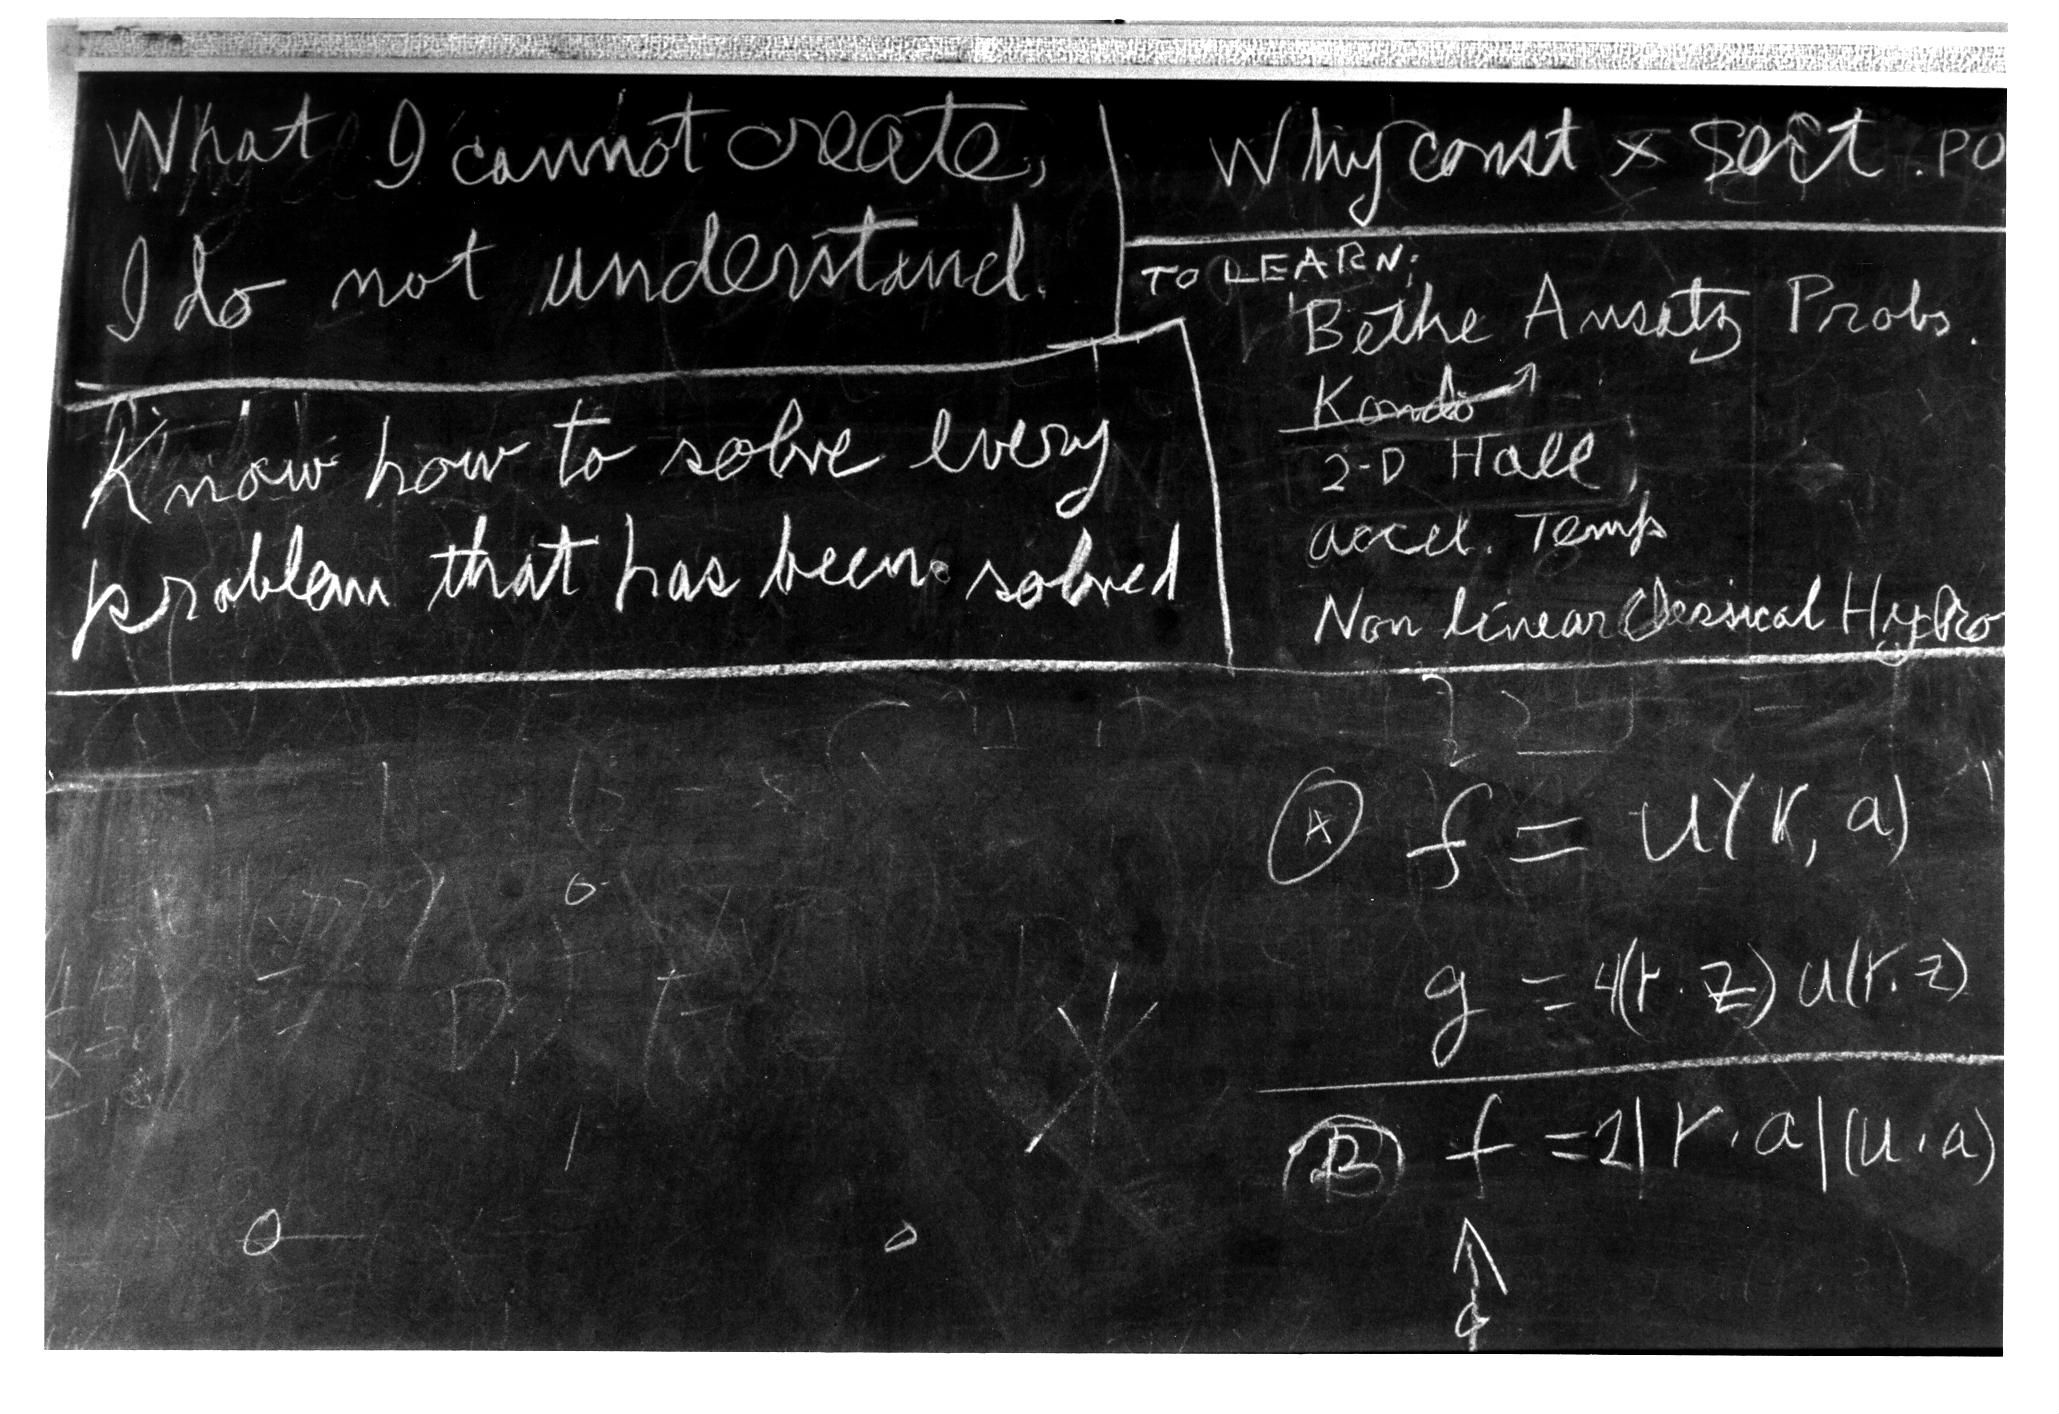 What I cannot create,
I do not understand.
Know how to solve every
problem that has been solved
Why const × sort . PO
TO LEARN:
Bethe Ansatz Probs.
Kondo
2-D Hall
accel. Temp
Non linear Classical Hydro
A f = u(r, a)
g = 4(r·z) u(r·z)
B f = 2|r·a|(u·a)